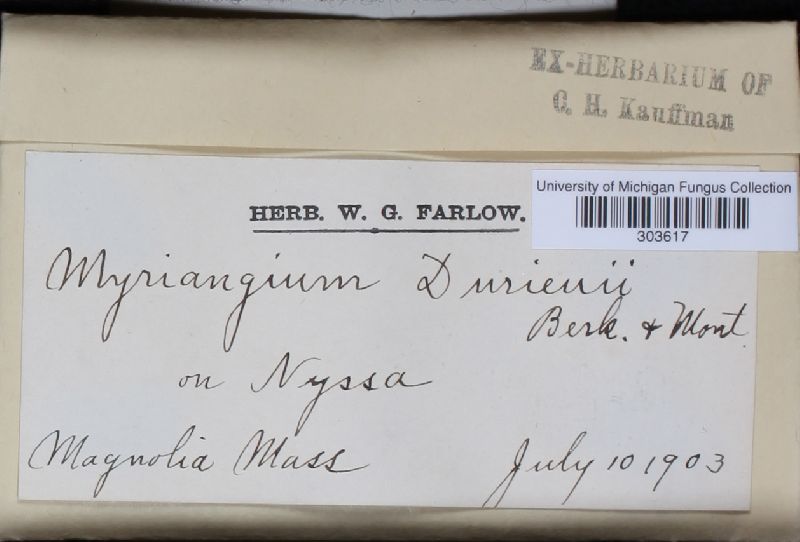 EX-HERBARIUM OF
C. H. Kauffman
HERB. W. G. FARLOW.
University of Michigan Fungus Collection
303617
Myriangium Durieuii
Berk. & Mont
on Nyssa
Magnolia Mass
July 10 1903